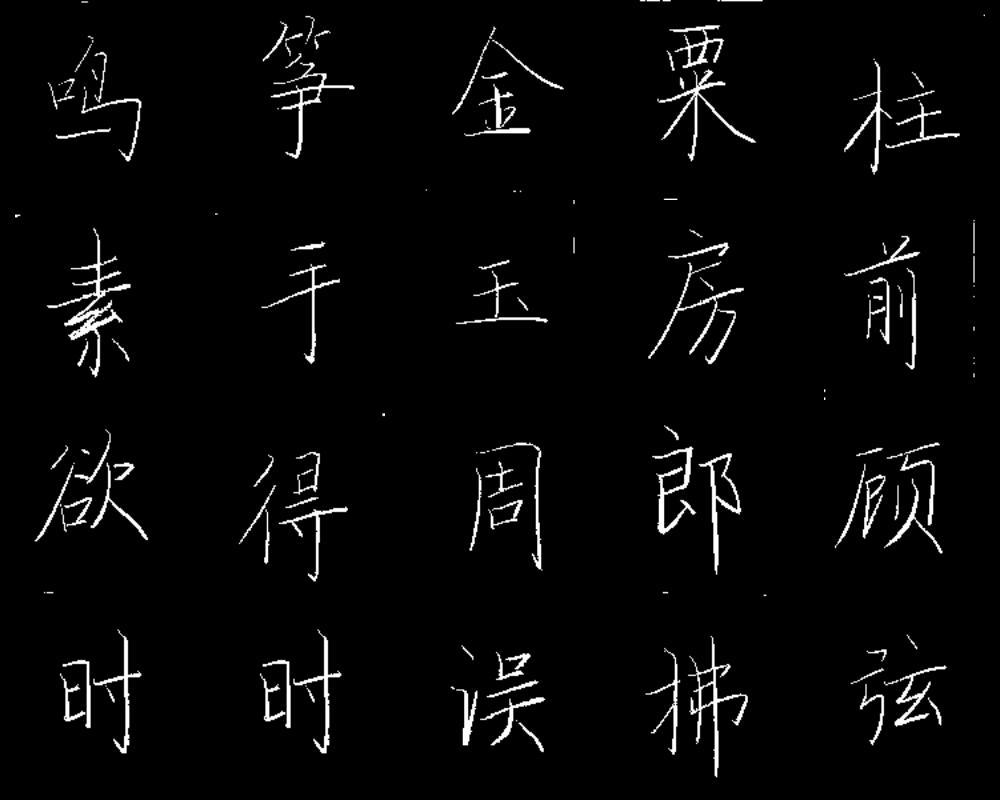 鸣筝金粟柱
素手玉房前
欲得周郎顾
时时误拂弦